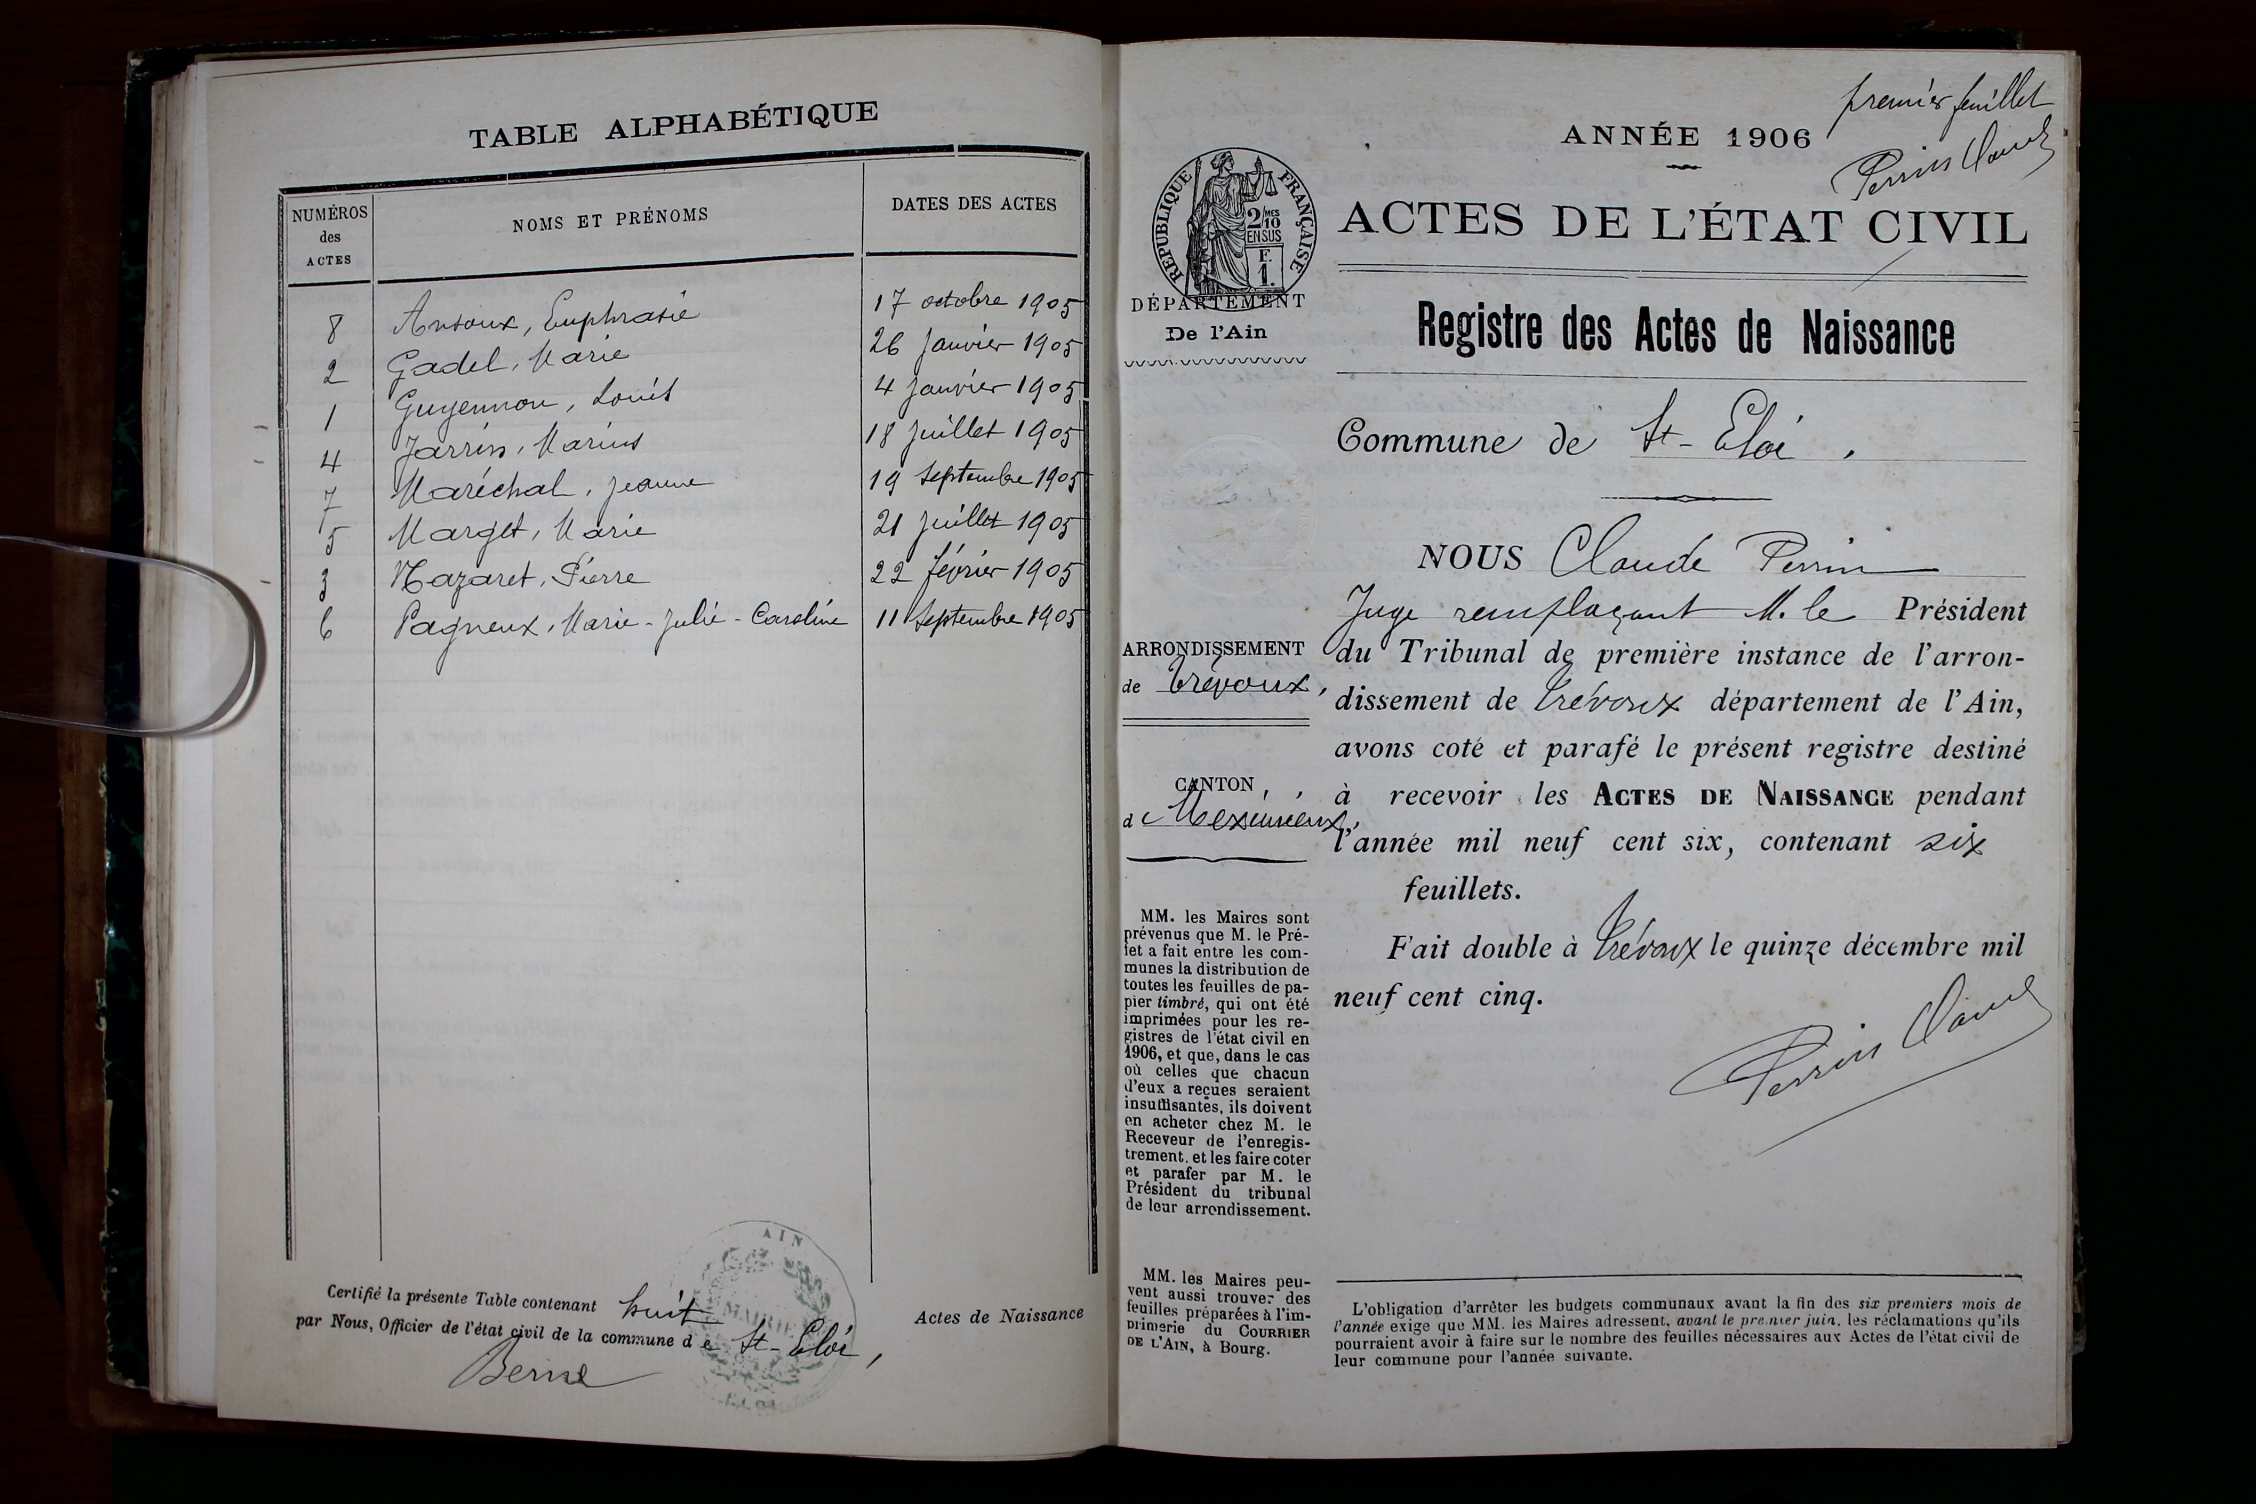 TABLE ALPHABÉTIQUE
NUMÉROS
des
ACTES
NOMS ET PRÉNOMS
DATES DES ACTES
8 Ansoux, Euphrasie 17 octobre 1905
2 Gadel, Marie 26 Janvier 1905
1 Guyennon, Louis 4 Janvier 1905
4 Jarrin, Marius 18 Juillet 1905
7 Maréchal, Jeanne 19 Septembre 1905
5 Marget, Marie 21 Juillet 1905
3 Nazaret, Pierre 22 février 1905
6 Pagneux, Marie-Julie-Caroline 11 Septembre 1905
Certifié la présente Table contenant huit Actes de Naissance
par Nous, Officier de l'état civil de la commune d e St-Eloi,
AIN
MAIRIE
premier feuillet
ANNÉE 1906
Perrin Claude
ACTES DE L'ÉTAT CIVIL
RÉPUBLIQUE FRANÇAISE
2/MES
10
EN SUS
F.
1.
DÉPARTEMENT
De l'Ain
Registre des Actes de Naissance
Commune de St-Eloi.
ARRONDISSEMENT
de Trévoux,
CANTON
d Meximieux,
MM. les Maires sont
prévenus que M. le Pré-
fet a fait entre les com-
munes la distribution de
toutes les feuilles de pa-
pier timbré, qui ont été
imprimées pour les re-
gistres de l'état civil en
1906, et que, dans le cas
où celles que chacun
d'eux a reçues seraient
insuffisantes, ils doivent
en acheter chez M. le
Receveur de l'enregis-
trement, et les faire coter
et parafer par M. le
Président du tribunal
de leur arrondissement.
MM. les Maires peu-
vent aussi trouver des
feuilles préparées à l'im-
primerie du COURRIER
DE L'AIN, à Bourg.
NOUS Claude Perrin
Juge remplaçant M. le Président
du Tribunal de première instance de l'arron-
dissement de Trévoux département de l'Ain,
avons coté et parafé le présent registre destiné
à recevoir les ACTES DE NAISSANCE pendant
l'année mil neuf cent six, contenant six
feuillets.
Fait double à Trévoux le quinze décembre mil
neuf cent cinq.
Perrin Claude
L'obligation d'arrêter les budgets communaux avant la fin des six premiers mois de
l'année exige que MM. les Maires adressent, avant le premier juin, les réclamations qu'ils
pourraient avoir à faire sur le nombre des feuilles nécessaires aux Actes de l'état civil de
leur commune pour l'année suivante.